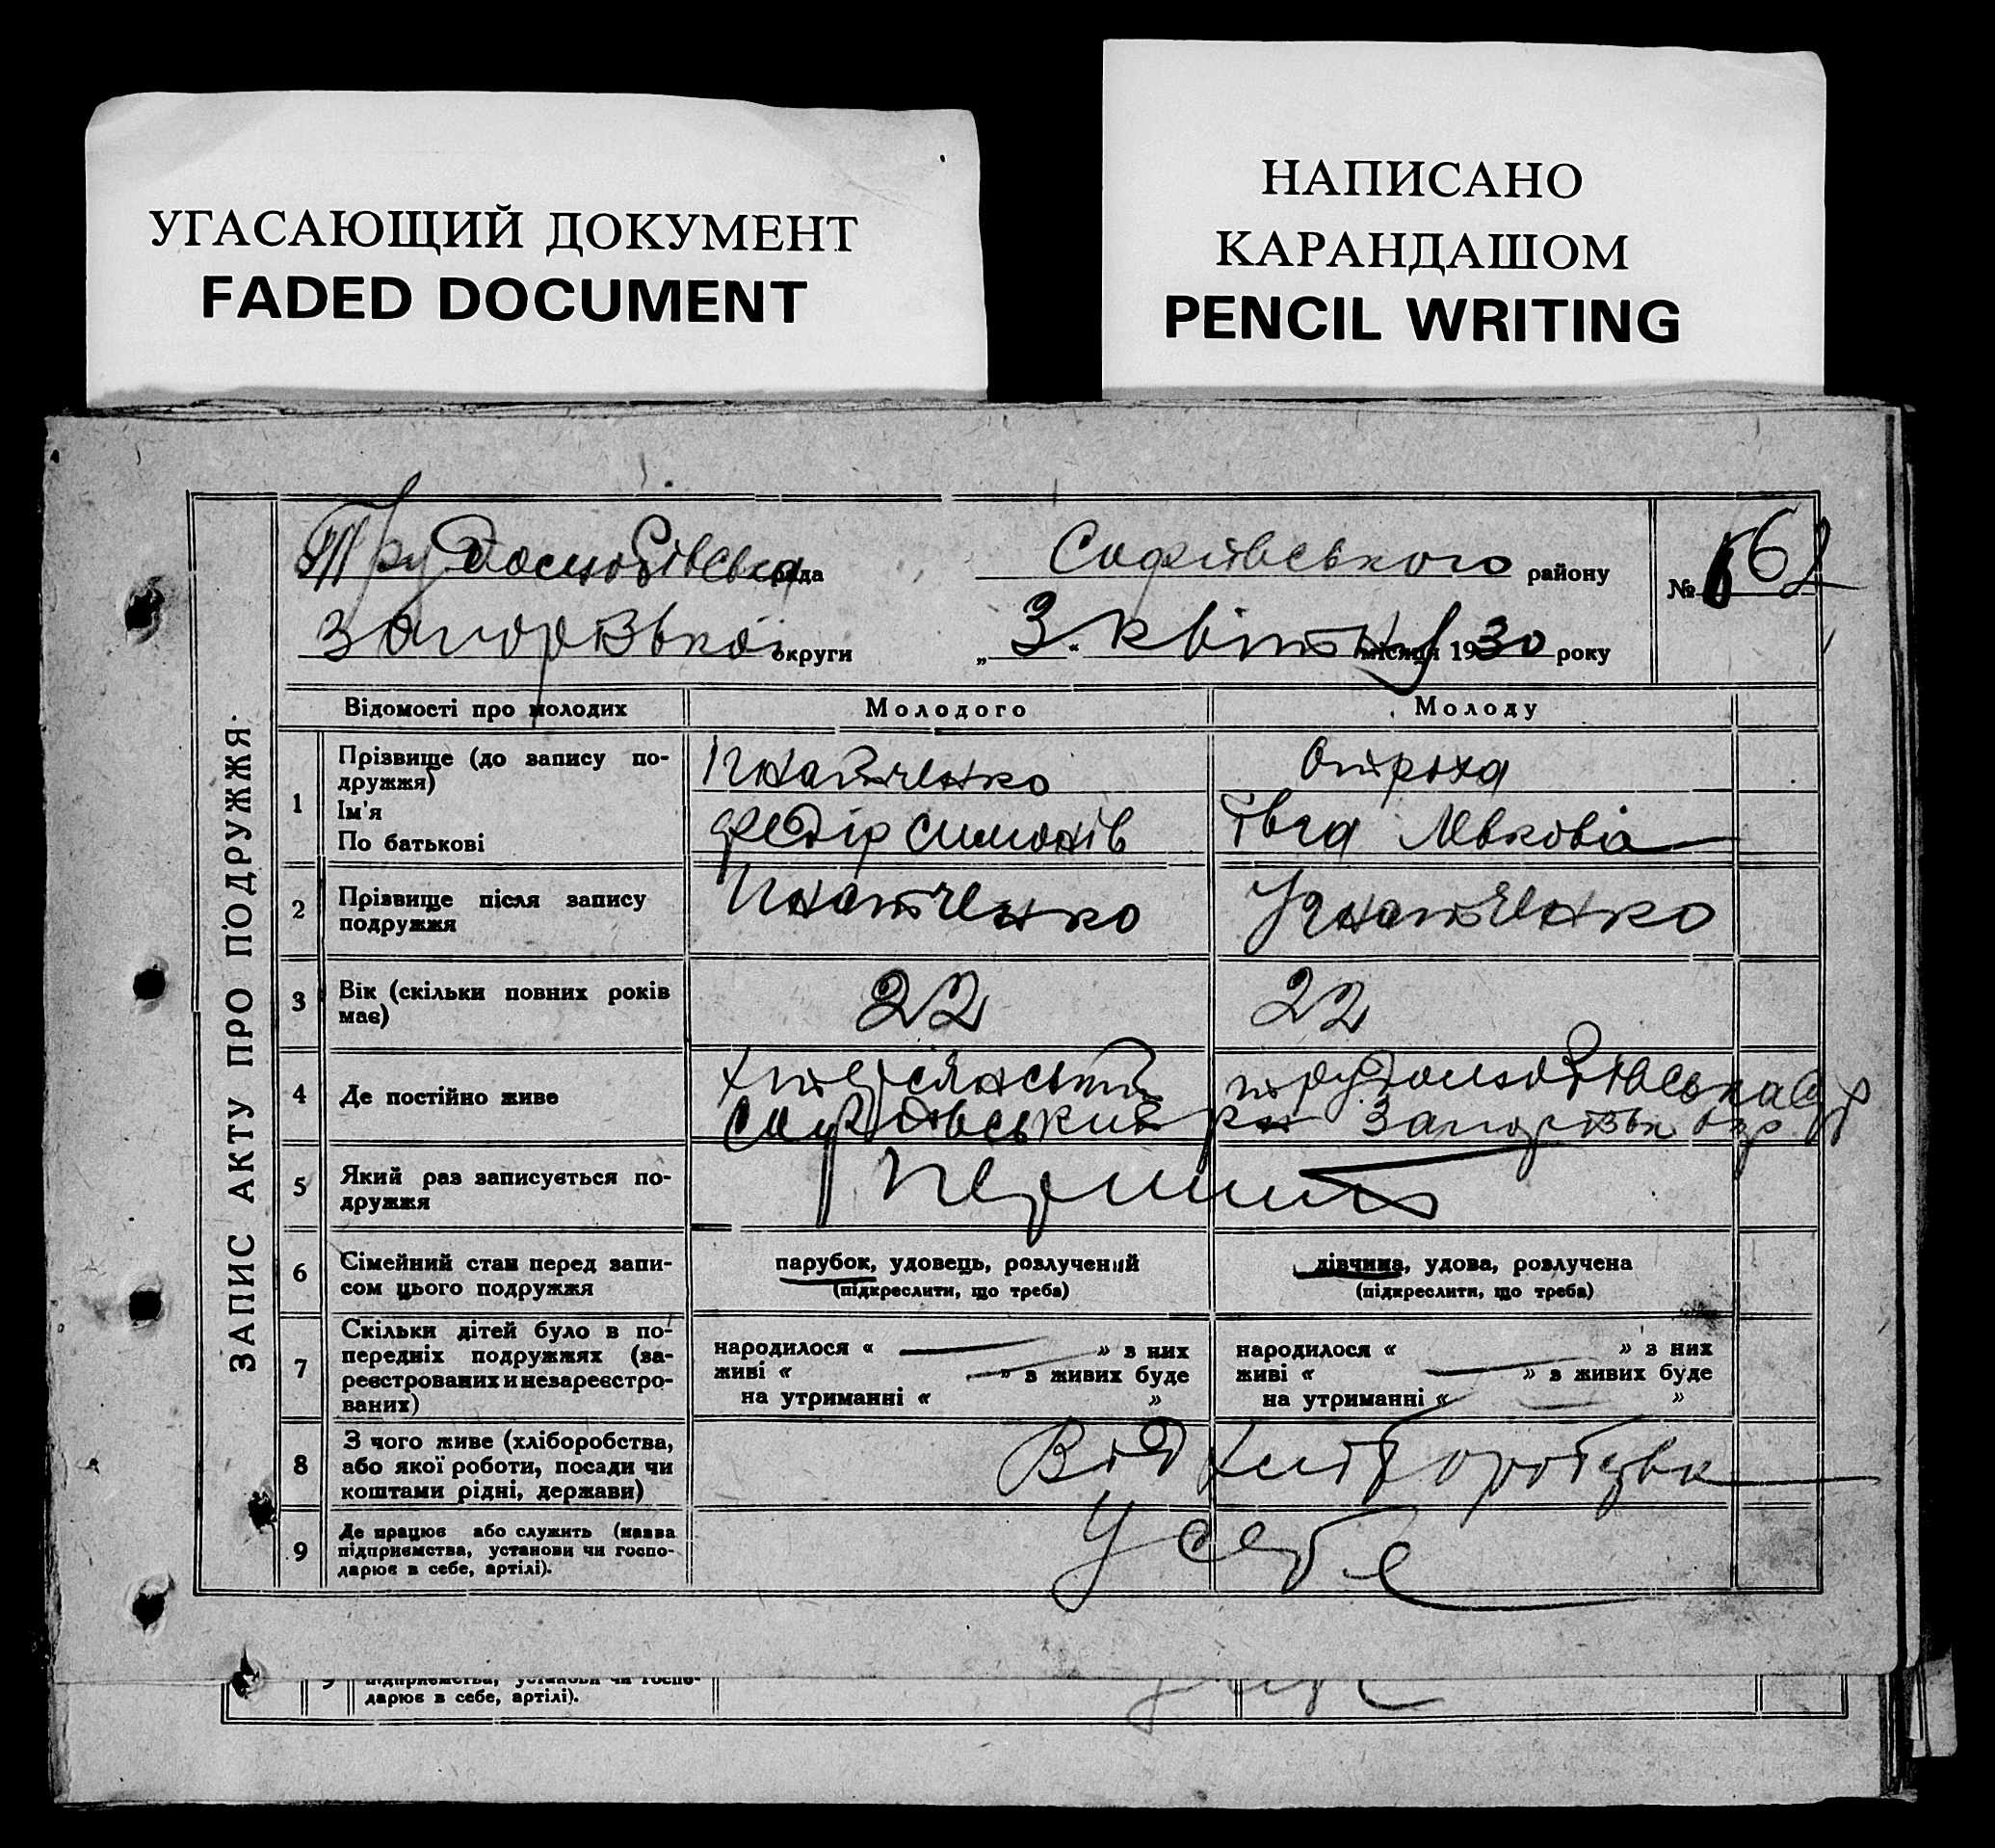 УГАСАЮЩИЙ ДОКУМЕНТ
FADED DOCUMENT
НАПИСАНО
КАРАНДАШОМ
PENCIL WRITING
ЗАПИС АКТУ ПРО ПОДРУЖЖЯ.
рада Софіївського району №
округи „3“ квітня місяця 1930 року
Відомості про молодих Молодого Молоду
1 Прізвище (до запису по-
дружжя) Ігнатченко
Ім'я
По батькові Федір Симонів Левкова
2 Прізвище після запису
подружжя Ігнатченко Ігнатченко
3 Вік (скільки повних років
має) 22 22
4 Де постійно живе
Софіївський
5 Який раз записується по-
дружжя
6 Сімейний стан перед запи-
сом цього подружжя
парубок, удовець, розлучений
(підкреслити, що треба)
дівчина, удова, розлучена
(підкреслити, що треба)
7 Скільки дітей було в по-
передніх подружжях (за-
реєстрованих и незареєстро-
ваних)
народилося « » з них
живі « » в живих буде
на утриманні « »
народилося « » з них
живі « » в живих буде
на утриманні « »
8 З чого живе (хліборобства,
або якої роботи, посади чи
коштами рідні, держави)
Від
9 Де працює або служить (назва
підприємства, установи чи госпо-
дарює в себе, артілі).
У себе
9 підприємства, установи чи госпо-
дарює в себе, артілі).